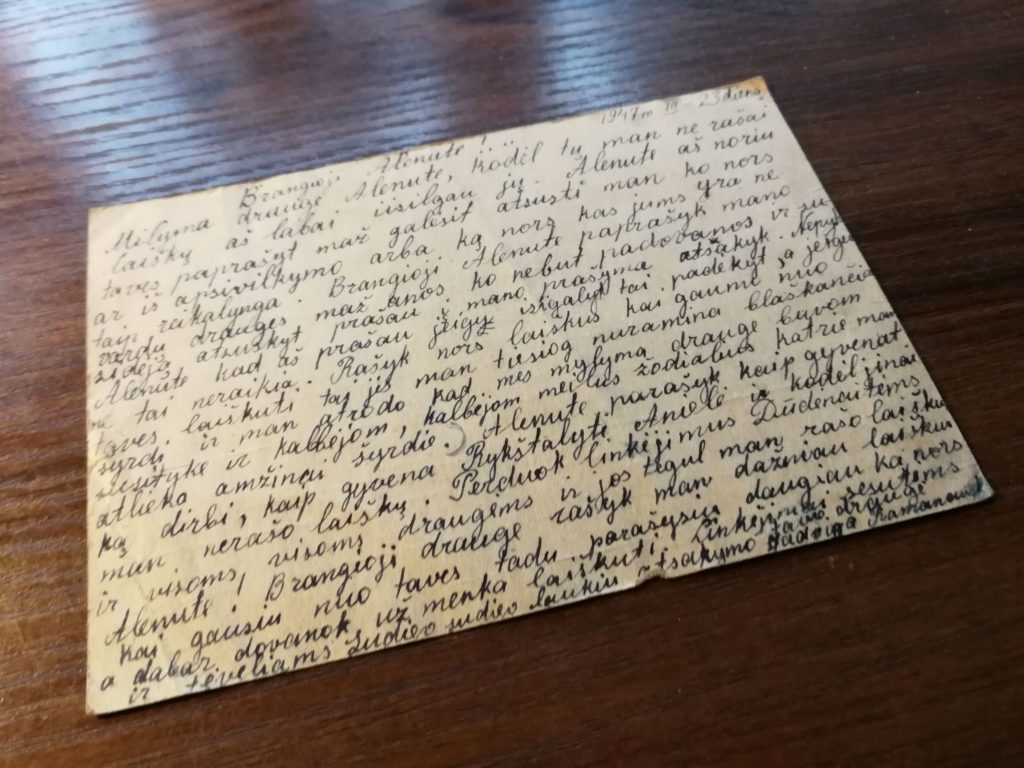 1947 m III - 23 dieną.
Brangioji Alenute!...
Milyma drauge Alenute, kodėl tu man ne rašai
laiškų aš labai iisilgau jų. Alenute aš noriu
tavęs paprašyt maž galėsit atsusti man ko nors
ar iš apsivilkymo arba ką nors kas jums yra ne
taip reikalynga. Brangioji Alenute paprašyk mano
vardu drauges maž anos ko nebut padovanos ir su
zidėję atsuskyt prašau mano prašyma atsakyk. Nepyk
Alenute kad aš prašau jeigu isigalyt tai padėkyt, a jeigu
ne tai neraikia. Rašyk nors laiskus kai gaume nuo
tavęs laiškuti tai jis man tiesiog nuramina blaškančia
syrdi ir man atrodo kad mes mylyma drauge buvom
slesitykę ir kalbėjom, kalbėjom meilius žodialius katrie man
atlieka amžinai syrdie. Alenute parašyk kaip gyvenat
ką dirbi, kaip gyvena Rykštalyti Anielė ir kodėl jinai
man nerašo laiškų. Perduok linkijimus Dudėnentėms
ir visoms, visoms draugėms ir jos tegul man rašo laiškų
Alenute! Brangioji drauge rašyk man dažniau laiškus
kai gausiu nuo tavęs tadu parašysiu daugiau ką nors
a dabar dovanok už menka laiškuti. Linkėjimai sesutems
ir tėveliams Sudiev sudiev laukiu atsakymo tavo draugė
Jadvyga